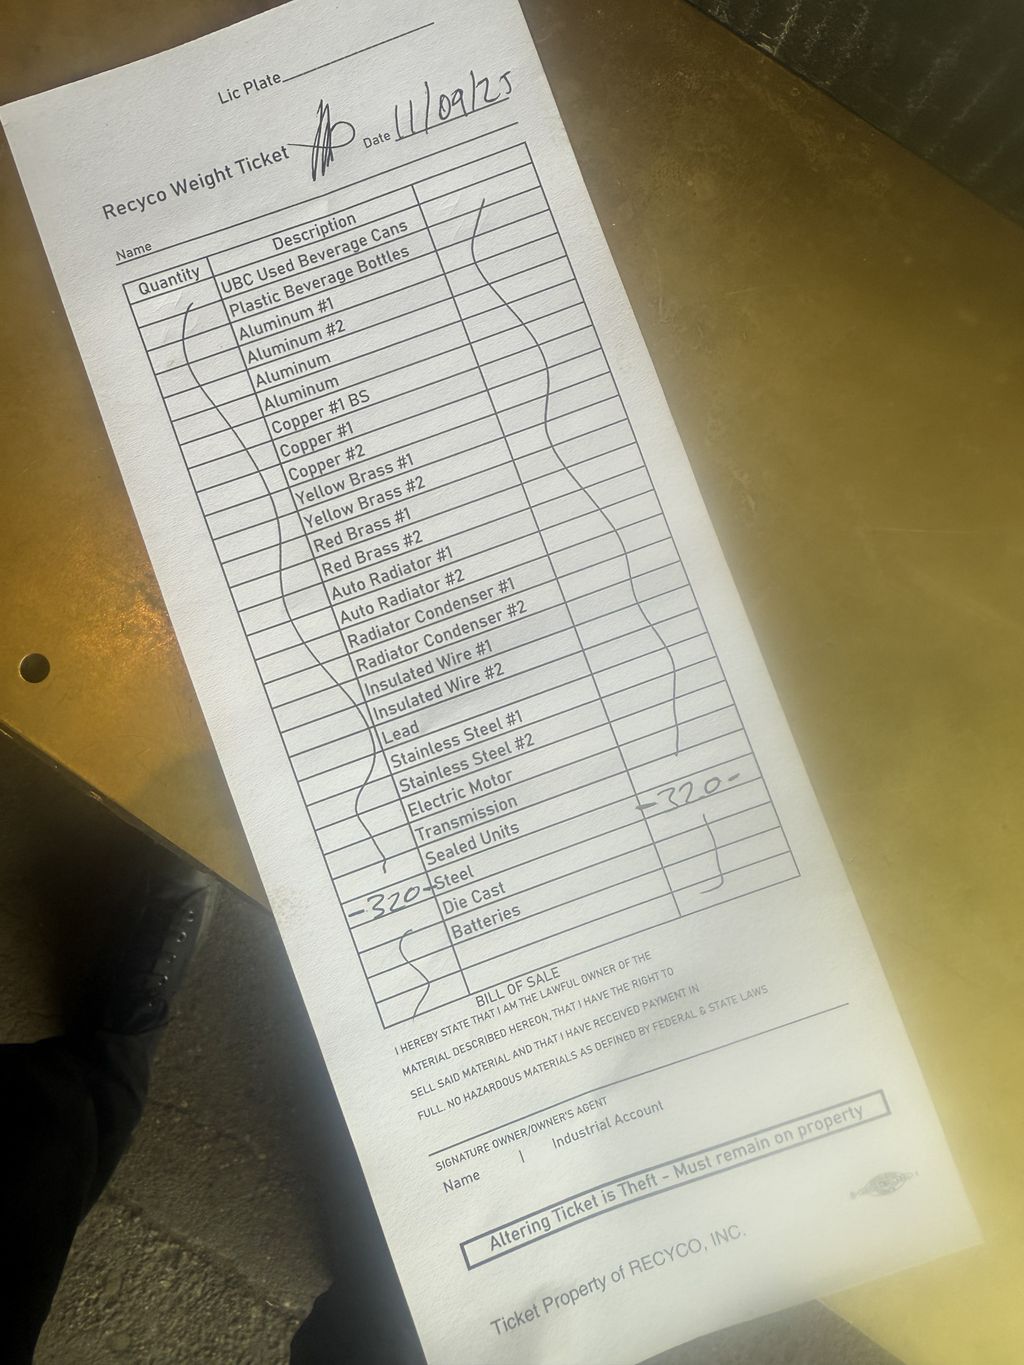 Lic Plate
Recyco Weight Ticket Date 11/09/25
Name
Quantity Description
UBC Used Beverage Cans
Plastic Beverage Bottles
Aluminum #1
Aluminum #2
Aluminum
Aluminum
Copper #1 BS
Copper #1
Copper #2
Yellow Brass #1
Yellow Brass #2
Red Brass #1
Red Brass #2
Auto Radiator #1
Auto Radiator #2
Radiator Condenser #1
Radiator Condenser #2
Insulated Wire #1
Insulated Wire #2
Lead
Stainless Steel #1
Stainless Steel #2
Electric Motor
Transmission
Sealed Units
-320- Steel -320-
Die Cast
Batteries
BILL OF SALE
I HEREBY STATE THAT I AM THE LAWFUL OWNER OF THE
MATERIAL DESCRIBED HEREON, THAT I HAVE THE RIGHT TO
SELL SAID MATERIAL AND THAT I HAVE RECEIVED PAYMENT IN
FULL. NO HAZARDOUS MATERIALS AS DEFINED BY FEDERAL & STATE LAWS
SIGNATURE OWNER/OWNER'S AGENT
Name | Industrial Account
Altering Ticket is Theft - Must remain on property
Ticket Property of RECYCO, INC.